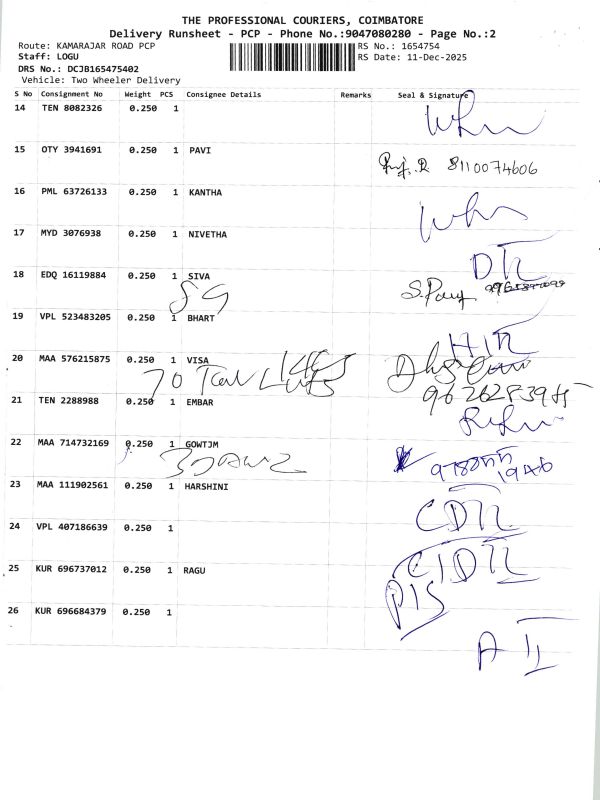 THE PROFESSIONAL COURIERS, COIMBATORE
Delivery Runsheet - PCP - Phone No.:9047080280 - Page No.:2
Route: KAMARAJAR ROAD PCP
RS No.: 1654754
Staff: LOGU
RS Date: 11-Dec-2025
DRS No.: DCJB165475402
Vehicle: Two Wheeler Delivery
S No Consignment No Weight PCS Consignee Details Remarks Seal & Signature
14 TEN 8082326 0.250 1
15 OTY 3941691 0.250 1 PAVI
8110074606
16 PML 63726133 0.250 1 KANTHA
17 MYD 3076938 0.250 1 NIVETHA
18 EDQ 16119884 0.250 1 SIVA
19 VPL 523483205 0.250 1 BHART
20 MAA 576215875 0.250 1 VISA
21 TEN 2288988 0.250 1 EMBAR
22 MAA 714732169 0.250 1 GOWTJM
23 MAA 111902561 0.250 1 HARSHINI
24 VPL 407186639 0.250 1
25 KUR 696737012 0.250 1 RAGU
26 KUR 696684379 0.250 1